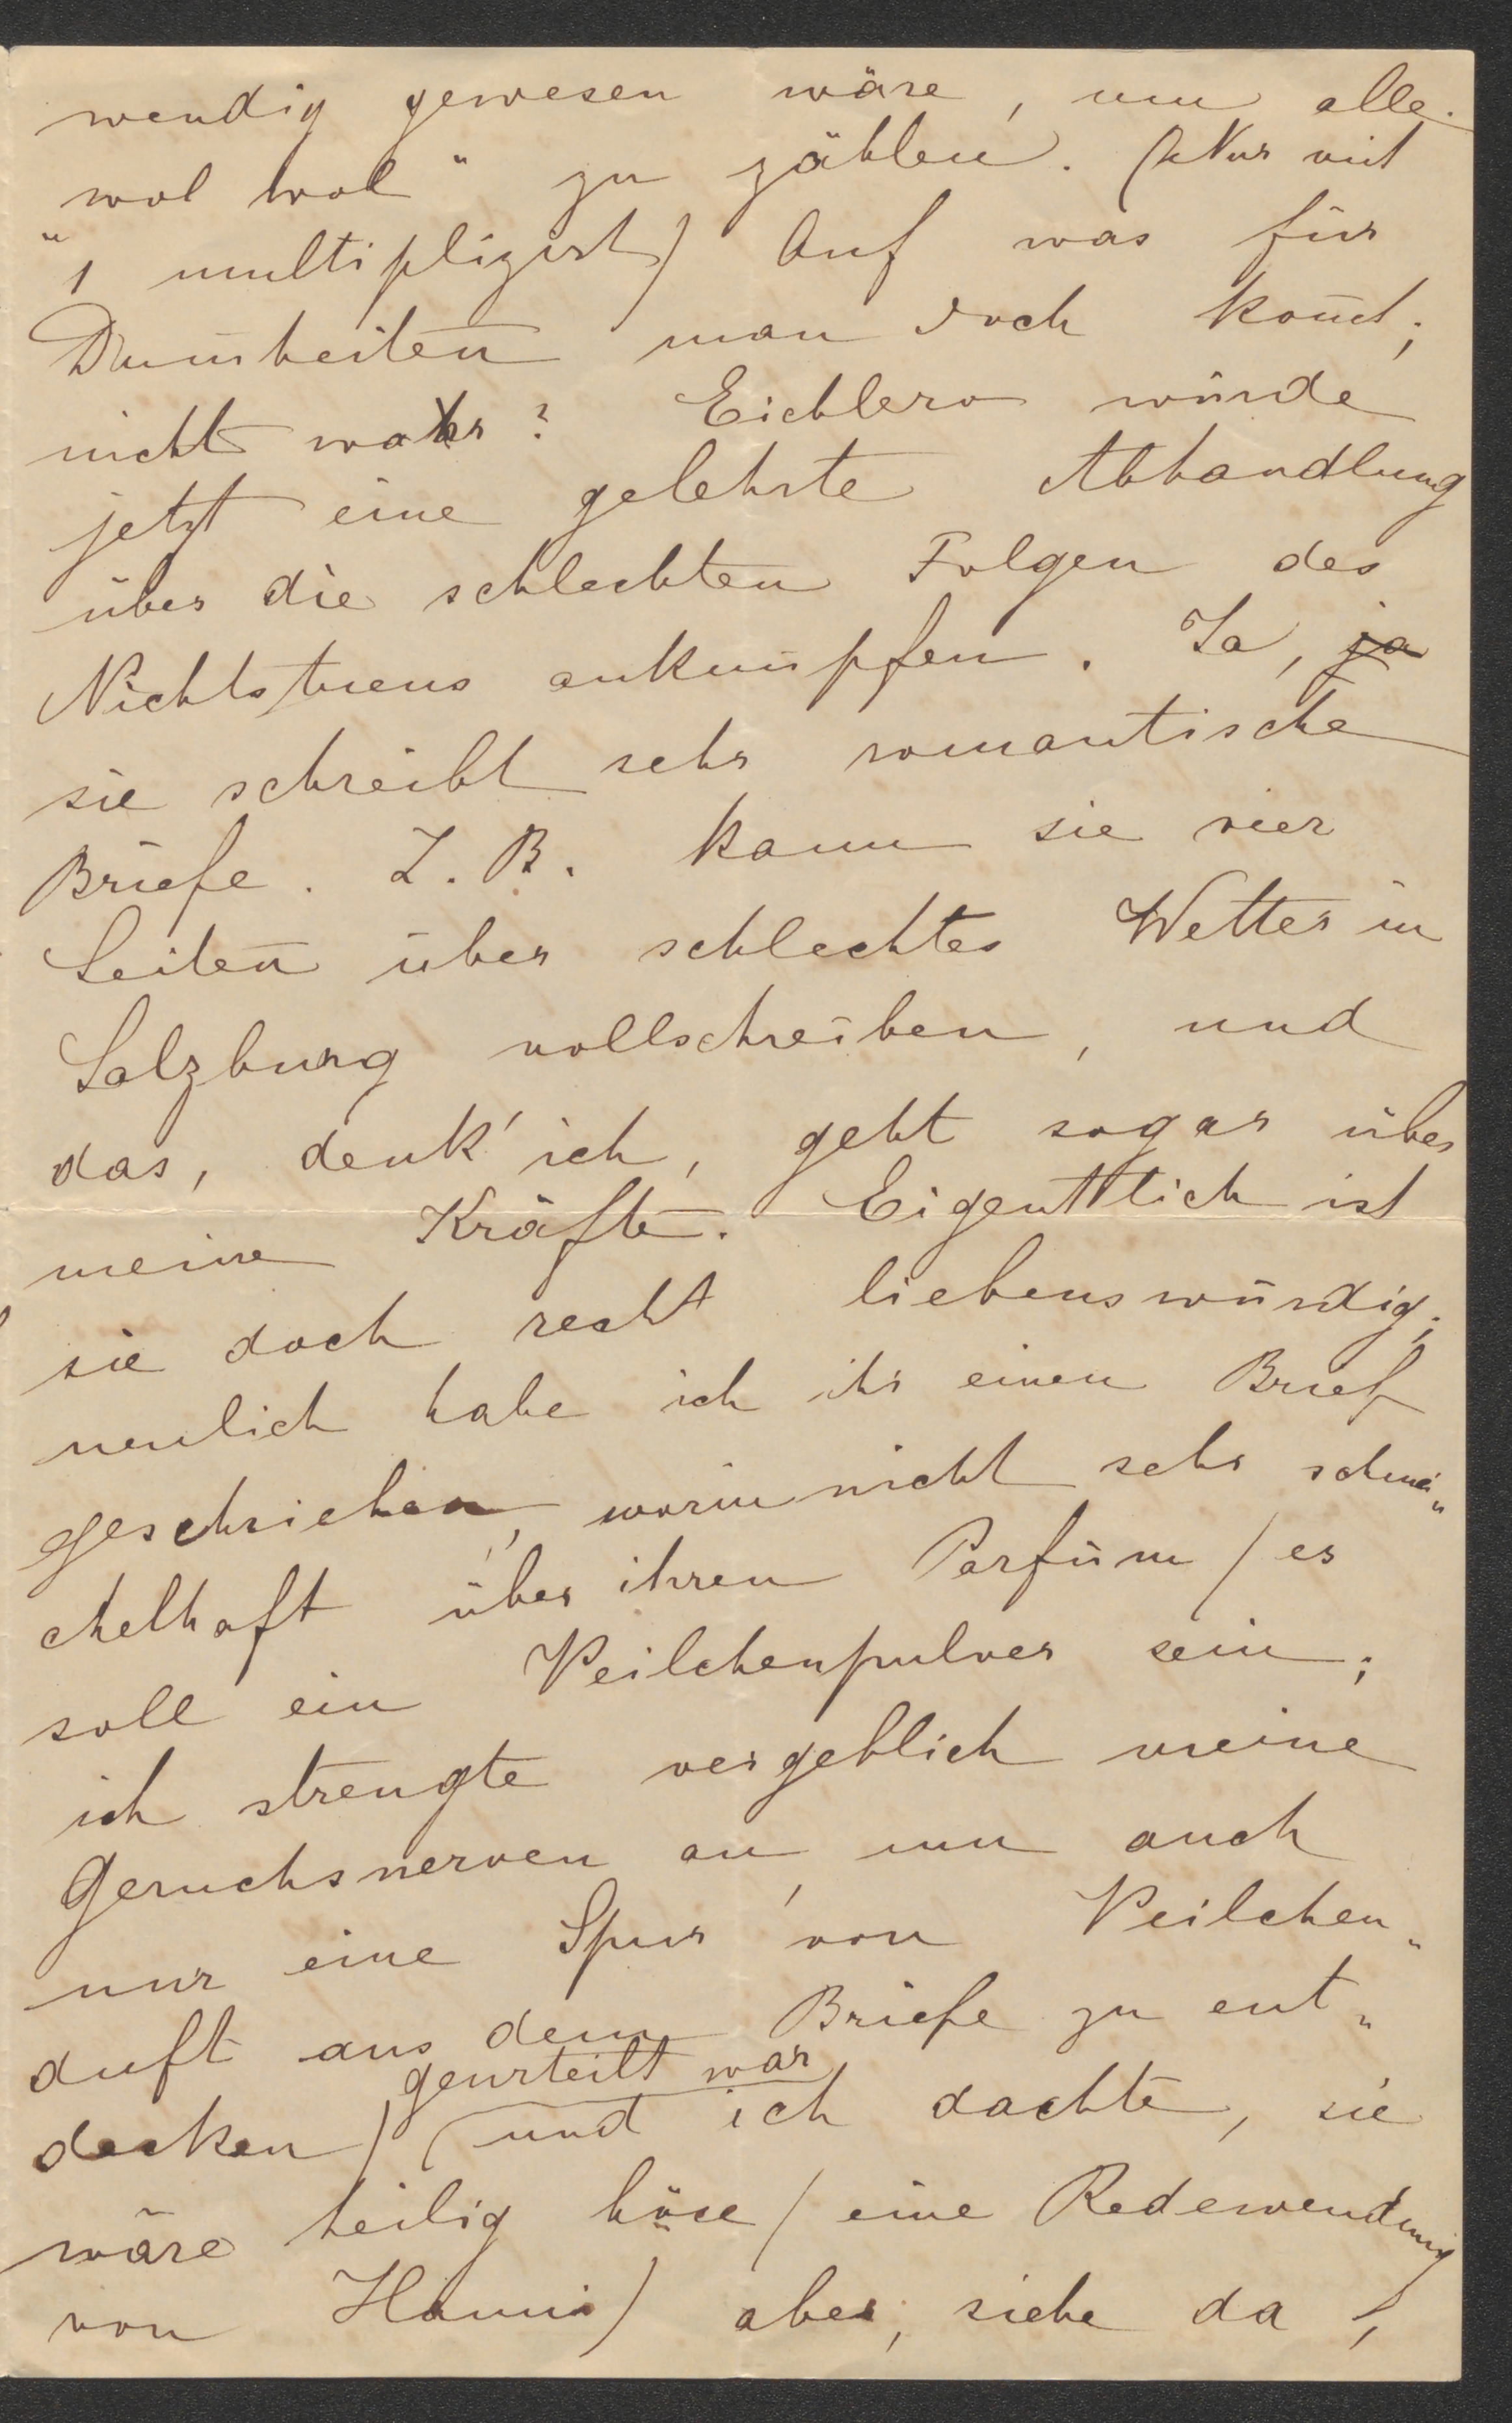 wendig gewesen wäre, um alle
wol wol" zu zählen. (Nur mit
"1 multipliziert) Auf was für
Dum̄heiten man doch kom̄t;
nicht wahr? Eichlero würde
jetzt eine gelehrte Abhandlung
über die schlechten Folgen des
Nichtstuens anknüpfen. Ja, ~~ja~~
sie schreibt sehr romantische
Briefe. Z. B. kann sie vier
Seiten über schlechtes Wetter in
Salzburg vollschreiben, und
das, denk' ich, geht sogar über
meine Kräfte. Eigentlich ist
sie doch recht liebenswürdig;
neulich habe ich ihr einen Brief
geschrieben, worin nicht sehr schmei„
chelhaft über ihren Parfüm (es
soll ein Veilchenpulver sein;
ich strengte vergeblich meine
Geruchsnerven an, um auch
nur eine Spur von Veilchen„
duft aus dem Briefe zu ent„
geurteilt war
decken) und ich dachte, sie
wäre heilig böse (eine Redewendung
von Hanni) aber, siehe da!,